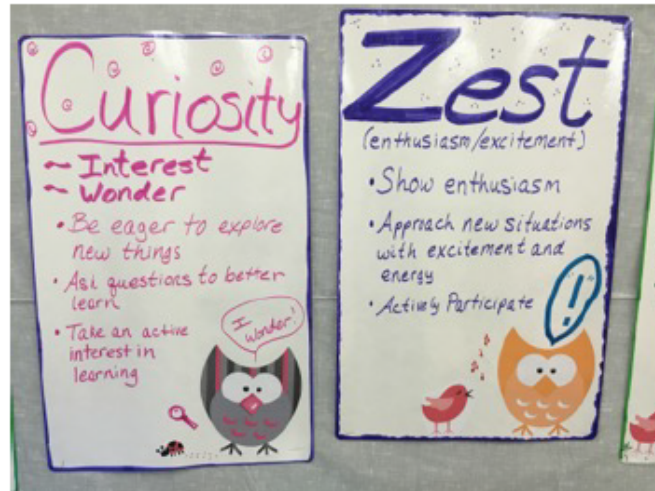 Curiosity
~ Interest
~ Wonder
• Be eager to explore
new things
• Ask questions to better
learn
• Take an active
interest in
learning
I
wonder!
Zest
(enthusiasm/excitement)
• Show enthusiasm
• Approach new situations
with excitement and
energy
• Actively Participate
!